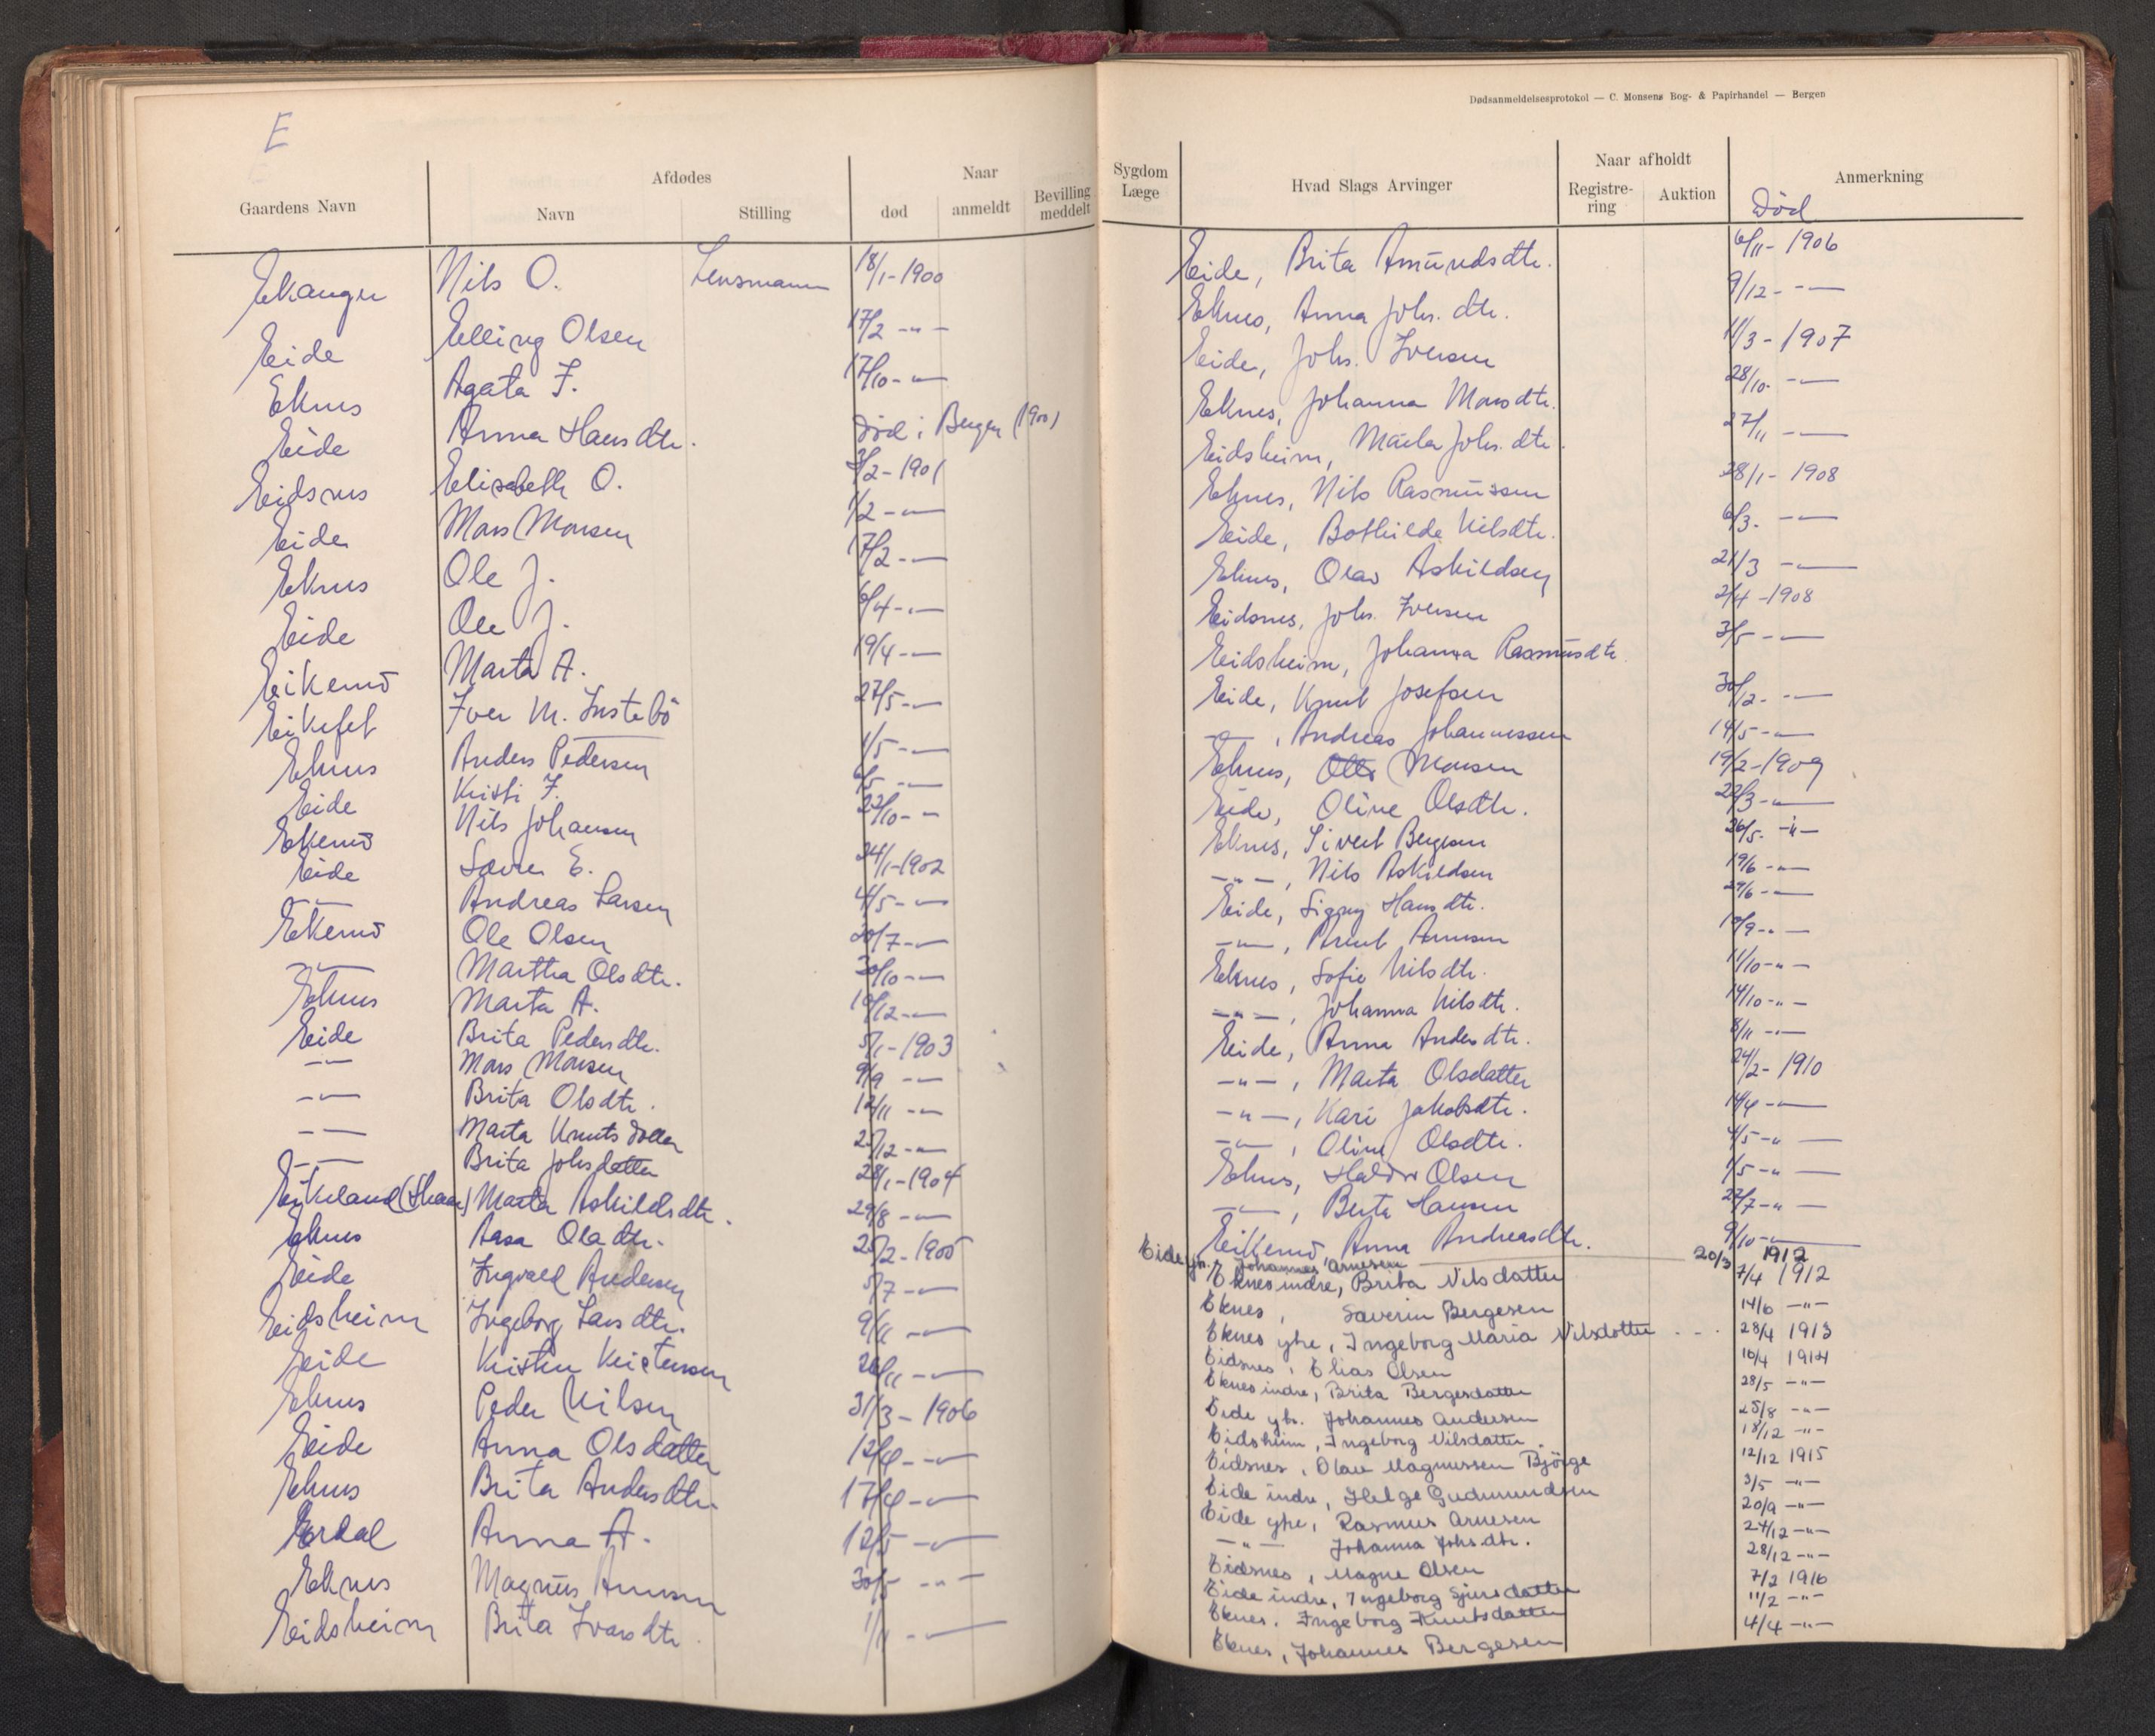 E
Afdødes
Naar
Gaardens Navn
Navn
Stilling
død
anmeldt
Bevilling meddelt
Ekanger Nils O. Lensmann 18/1-1900
Eide Elling Olsen 17/2 -"-
Eknes Agata I. 17/10-"-
Eide Anna Hansdtr. død i Bergen (1900)
Eidsnes Elisabeth O. /2-1901
Eide Mons Monsen 1/2-"-
Eknes Ole J. 17/2-"-
Eide Ole J. 6/4-"-
Eikemo Marta A. 19/4-"-
Eikefet Iver M. Instebö 27/5-"-
Eknes Anders Pedersen 1/5-"-
Eide Kristi I. 6/5-"-
Ekemo Nils Johansen 22/10-"-
Eide Søren E. 24/1-1902
-"- Andreas Larsen 4/5-"-
Ekemo Ole Olsen 20/7-"-
-"- Martha Olsdtr. 30/10-"-
Eknes Marta A. 10/12-"-
Eide Brita Pedersdtr. 5/1-1903
-"- Mons Monsen 9/9-"-
-"- Brita Olsdtr. 12/11-"-
-"- Marta Knutsdotter 2/12-"-
-"- Brita Johsdatter 28/1-1904
Eikeland Marta Askildsdtr. 29/8-"-
Eknes Aasa Oladtr. 25/2-1905
Eide Ingvald Andersen 5/7-"-
Eidsheim Ingeborg Larsdtr. 9/11-"-
Eide Kristen Kristensen 26/11-"-
Eknes Peder Nilsen 31/3-1906
Eide Anna Olsdatter 12/4-"-
Eknes Brita Andersdtr. 17/4-"-
Erdal Anna A. 12/5-"-
Eknes Magnus Arnesen 30/5-"-
Eidsheim Brita Ivarsdtr. 1/11-"-
Dødsanmeldelsesprotokol — C. Monsens Bog- & Papirhandel — Bergen
Sygdom Læge
Hvad Slags Arvinger
Naar afholdt
Registrering
Auktion
Anmerkning
Död
Eide, Brita Amundsdtr. 6/11-1906
Eknes, Anna Johs.dtr. 9/12-"-
Eide, Johs. Iversen 11/3-1907
Eknes, Johanna Monsdtr. 28/10-"-
Eidsheim, Marta Johs.dtr. 27/11-"-
Eknes, Nils Rasmussen 28/1-1908
Eide, Bothilde Nilsdtr. 6/3-"-
Eknes, Olav Askildsen 21/3-"-
Eidsnes, Johs. Iversen 2/4-1908
Eidsheim, Johanna Rasmusdtr. 3/5-"-
Eide, Knut Josefsen 30/12-"-
-"-, Andreas Johannessen 14/5-"-
Eknes, Monsen 19/2-1909
Eide, Oline Olsdtr. 22/3-"-
Eknes, Sivert Bergesen 26/5-"-
-"-, Nils Askildsen 19/6-"-
Eide, Signy Hansdtr. 29/6-"-
-"-, Knut Arnesen 10/9-"-
Eknes, Sofie Nilsdtr. 11/10-"-
-"-, Johanna Nilsdtr. 14/10-"-
Eide, Anna Andersdtr. 8/11-"-
-"-, Marta Olsdatter 24/2-1910
-"-, Kari Jakobsdtr. 14/4-"-
-"-, Oline Olsdtr. 4/5-"-
Eknes, Haldor Olsen 1/5-"-
-"-, Berte Hansen 27/7-"-
Eikemo, Anna Andreasdtr. 9/10-"-
Eide yt., Johannes Arnesen 20/3 1912
Eknes indre, Brita Nilsdatter 7/4 1912
Eknes, Saverin Bergesen 14/6 -"-
Eknes ytre, Ingeborg Maria Nilsdotter 28/4 1913
Eidsnes, Elias Olsen 10/4 1914
Eknes indre, Brita Bergesdatter 28/5 -"-
Eide ytr. Johannes Andersen 25/8 -"-
Eidsheim, Ingeborg Nilsdatter 18/12 -"-
Eidsnes, Olav Magnussen Björge 12/12 1915
Eide indre, Helge Gudmundsen 3/5 -"-
Eide ytre, Rasmus Arnesen 20/9 -"-
-"- Johanna Johsdtr. 24/12 -"-
Eidsnes, Magne Olsen 28/12 -"-
Eide indre, Ingeborg Sjursdatter 7/2 1916
Eknes, Ingeborg Knutsdatter 11/2 -"-
Eknes, Johannes Bergesen 4/4 -"-